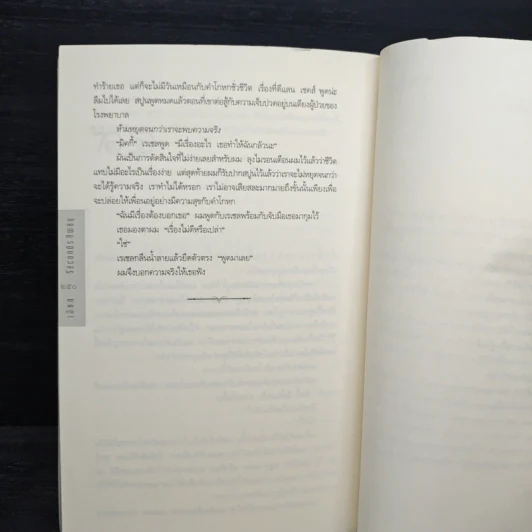 ทำร้ายเธอ แต่ก็จะไม่มีวันเหมือนกับคำโกหกชั่วชีวิต เรื่องที่ดีแลน เชคส์ พูดน่ะ
ลืมไปได้เลย สปูนพูดหมดแล้วตอนที่เขาต่อสู้กับความเจ็บปวดอยู่บนเตียงผู้ป่วยของ
โรงพยาบาล
ห้ามหยุดจนกว่าเราจะพบความจริง
“มิคกี้” เรเชลพูด “มีเรื่องอะไร เธอทำให้ฉันกลัวนะ”
มันเป็นการตัดสินใจที่ไม่ง่ายเลยสำหรับผม ลุงไมรอนเตือนผมไว้แล้วว่าชีวิต
แทบไม่มีอะไรเป็นเรื่องง่าย แต่สุดท้ายผมก็รับปากสปูนไว้แล้วว่าเราจะไม่หยุดจนกว่า
จะได้รู้ความจริง เราทำไม่ได้หรอก เราไม่อาจเสียสละมากมายถึงขั้นนั้นเพียงเพื่อ
จะปล่อยให้เพื่อนอยู่อย่างมีความสุขกับคำโกหก
“ฉันมีเรื่องต้องบอกเธอ” ผมพูดกับเรเชลพร้อมกับจับมือเธอมากุมไว้
เธอมองตาผม “เรื่องไม่ดีหรือเปล่า”
“ใช่”
เรเชลกลืนน้ำลายแล้วยืดตัวตรง “พูดมาเลย”
ผมจึงบอกความจริงให้เธอฟัง
Seconds Away